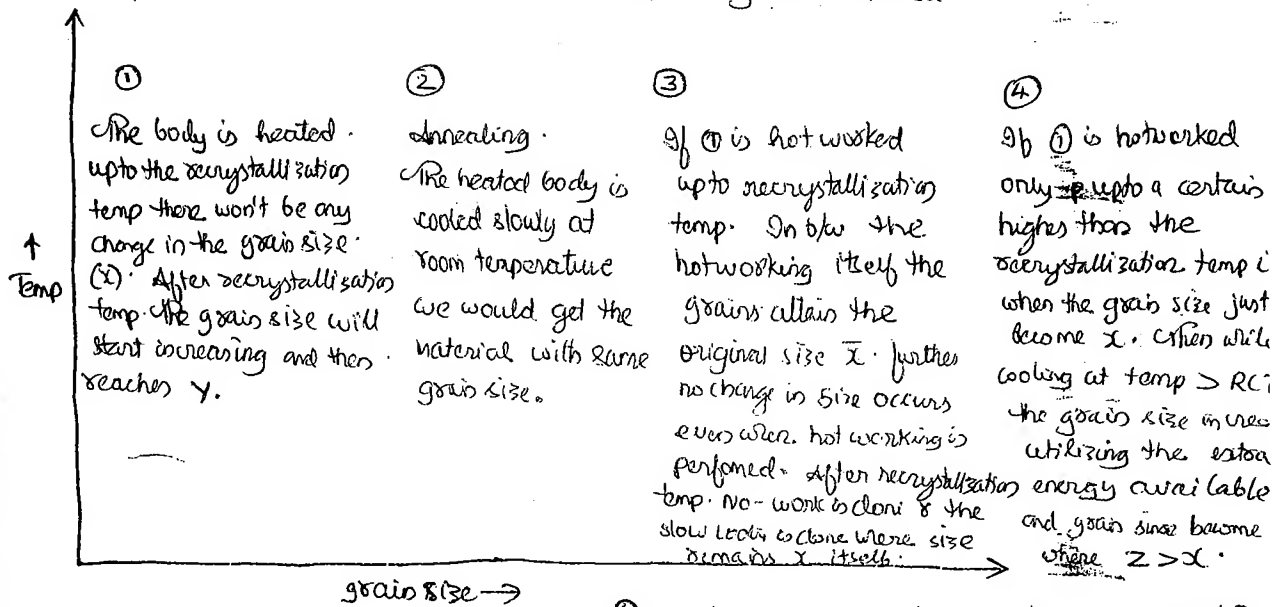 ①
The body is heated.
upto the recrystallization
temp there won't be any
change in the grain size.
(x). After recrystallization
temp. the grain size will
start increasing and then
reaches Y.
②
Annealing.
The heated body is
cooled slowly at
room temperature
we would get the
material with same
grain size.
③
If ① is hot worked
upto recrystallization
temp. In b/w the
hotworking itself the
grains attain the
original size x. further
no change in size occurs
even when. hot working is
performed. After recrystallization
temp. No-work is done & the
slow is done where size
remains x itself.
④
If ① is hotworked
only upto a certain
higher than the
recrystallization temp i
when the grain size just
become x. Then while
cooling at temp > RC
the grain size increa
utilizing the extra
energy available
and grain size become
where Z > x.
↑
Temp
grain size →